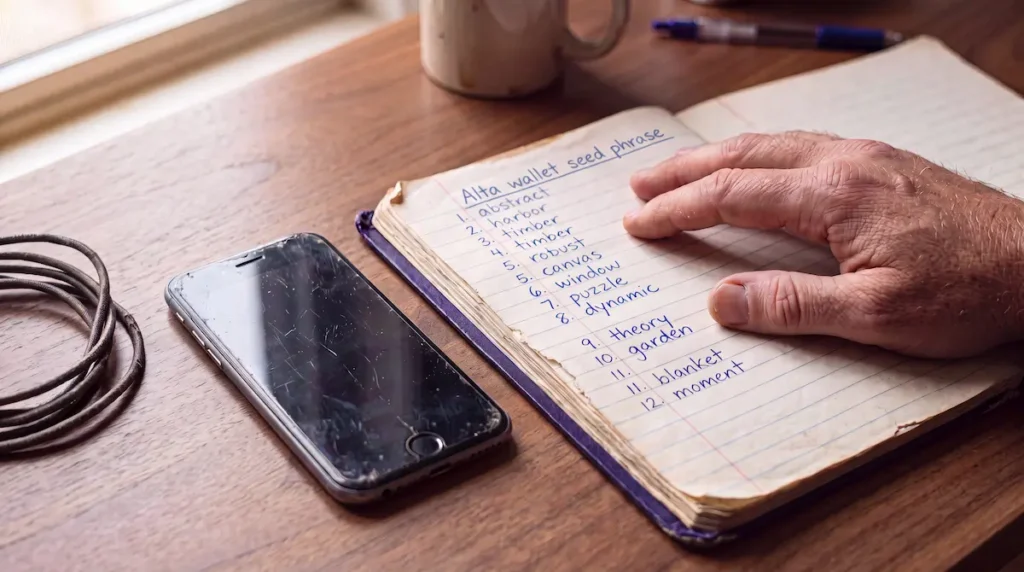 Alta wallet seed phrase
1. abstract
2. harbor
3. timber
4. timber
5. robust
5. canvas
6. window
7. puzzle
8. dynamic
9. theory
10. garden
11.
11. blanket
12. moment